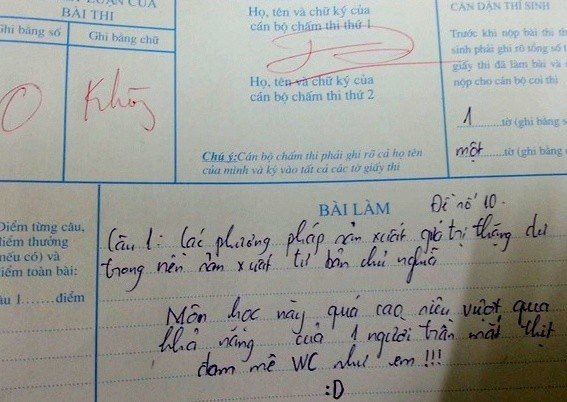 LUẬN CỦA
BÀI THI
Ghi bằng số
Ghi bằng chữ
0
Không
Họ, tên và chữ ký của
cán bộ chấm thi thứ 1
Họ, tên và chữ ký của
cán bộ chấm thi thứ 2
Chú ý: Cán bộ chấm thi phải ghi rõ cả họ tên
của mình và ký vào tất cả các tờ giấy thi
CĂN DẶN THÍ SINH
Trước khi nộp bài thi th
sinh phải ghi rõ tổng số t
giấy thi đã làm bài và
nộp cho cán bộ coi thi
1......tờ (ghi bằng s
một......tờ (ghi bằng
BÀI LÀM
Đề số 10.
Điểm từng câu,
điểm thưởng
(nếu có) và
điểm toàn bài:
âu 1.......điểm
Câu 1: Các phương pháp sản xuất giá trị thặng dư
trong nền sản xuất tư bản chủ nghĩa
Môn học này quá cao siêu vượt qua
khả năng của 1 người trần mắt thịt
đam mê WC như em !!!
:D